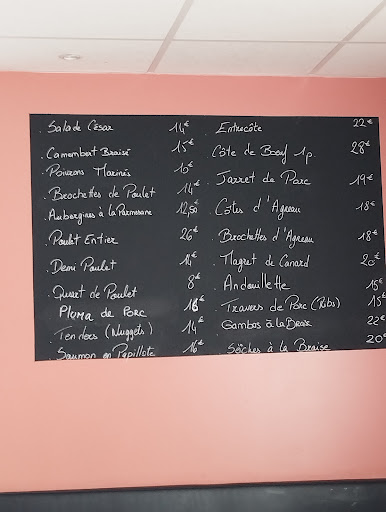 . Salade César 14€
. Camembert Braisé 15€
. Poivrons Marinés 10€
. Brochettes de Poulet 14€
. Aubergines à la Parmesane 12,50€
. Poulet Entier 26€
. Demi Poulet 14€
. Quart de Poulet 8€
. Pluma de Porc 16€
. Tenders (Nuggets) 14€
. Saumon en Papillote 16€
. Entrecôte 22€
. Côte de Boeuf 1p. 28€
. Jarret de Porc 19€
. Côtes d'Agneau 18€
. Brochettes d'Agneau 18€
. Magret de Canard 20€
. Andouillette 15€
. Travers de Porc (Ribs) 15€
. Gambas à la Braise 22€
. Sèiches à la Braise 20€